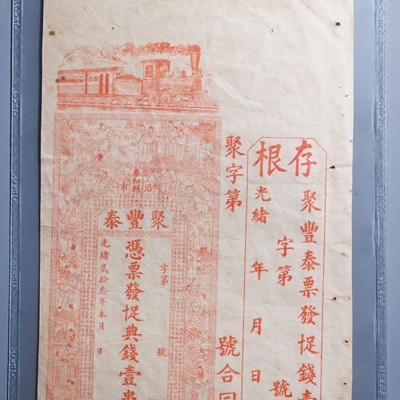 存根
聚豐泰票發足錢壹
字第 號
光緒 年 月 日
聚字第 號合
泰和縣
沿市
聚豐泰
字第 號
憑票發足典錢壹串
光緒貳拾叁年本月 日